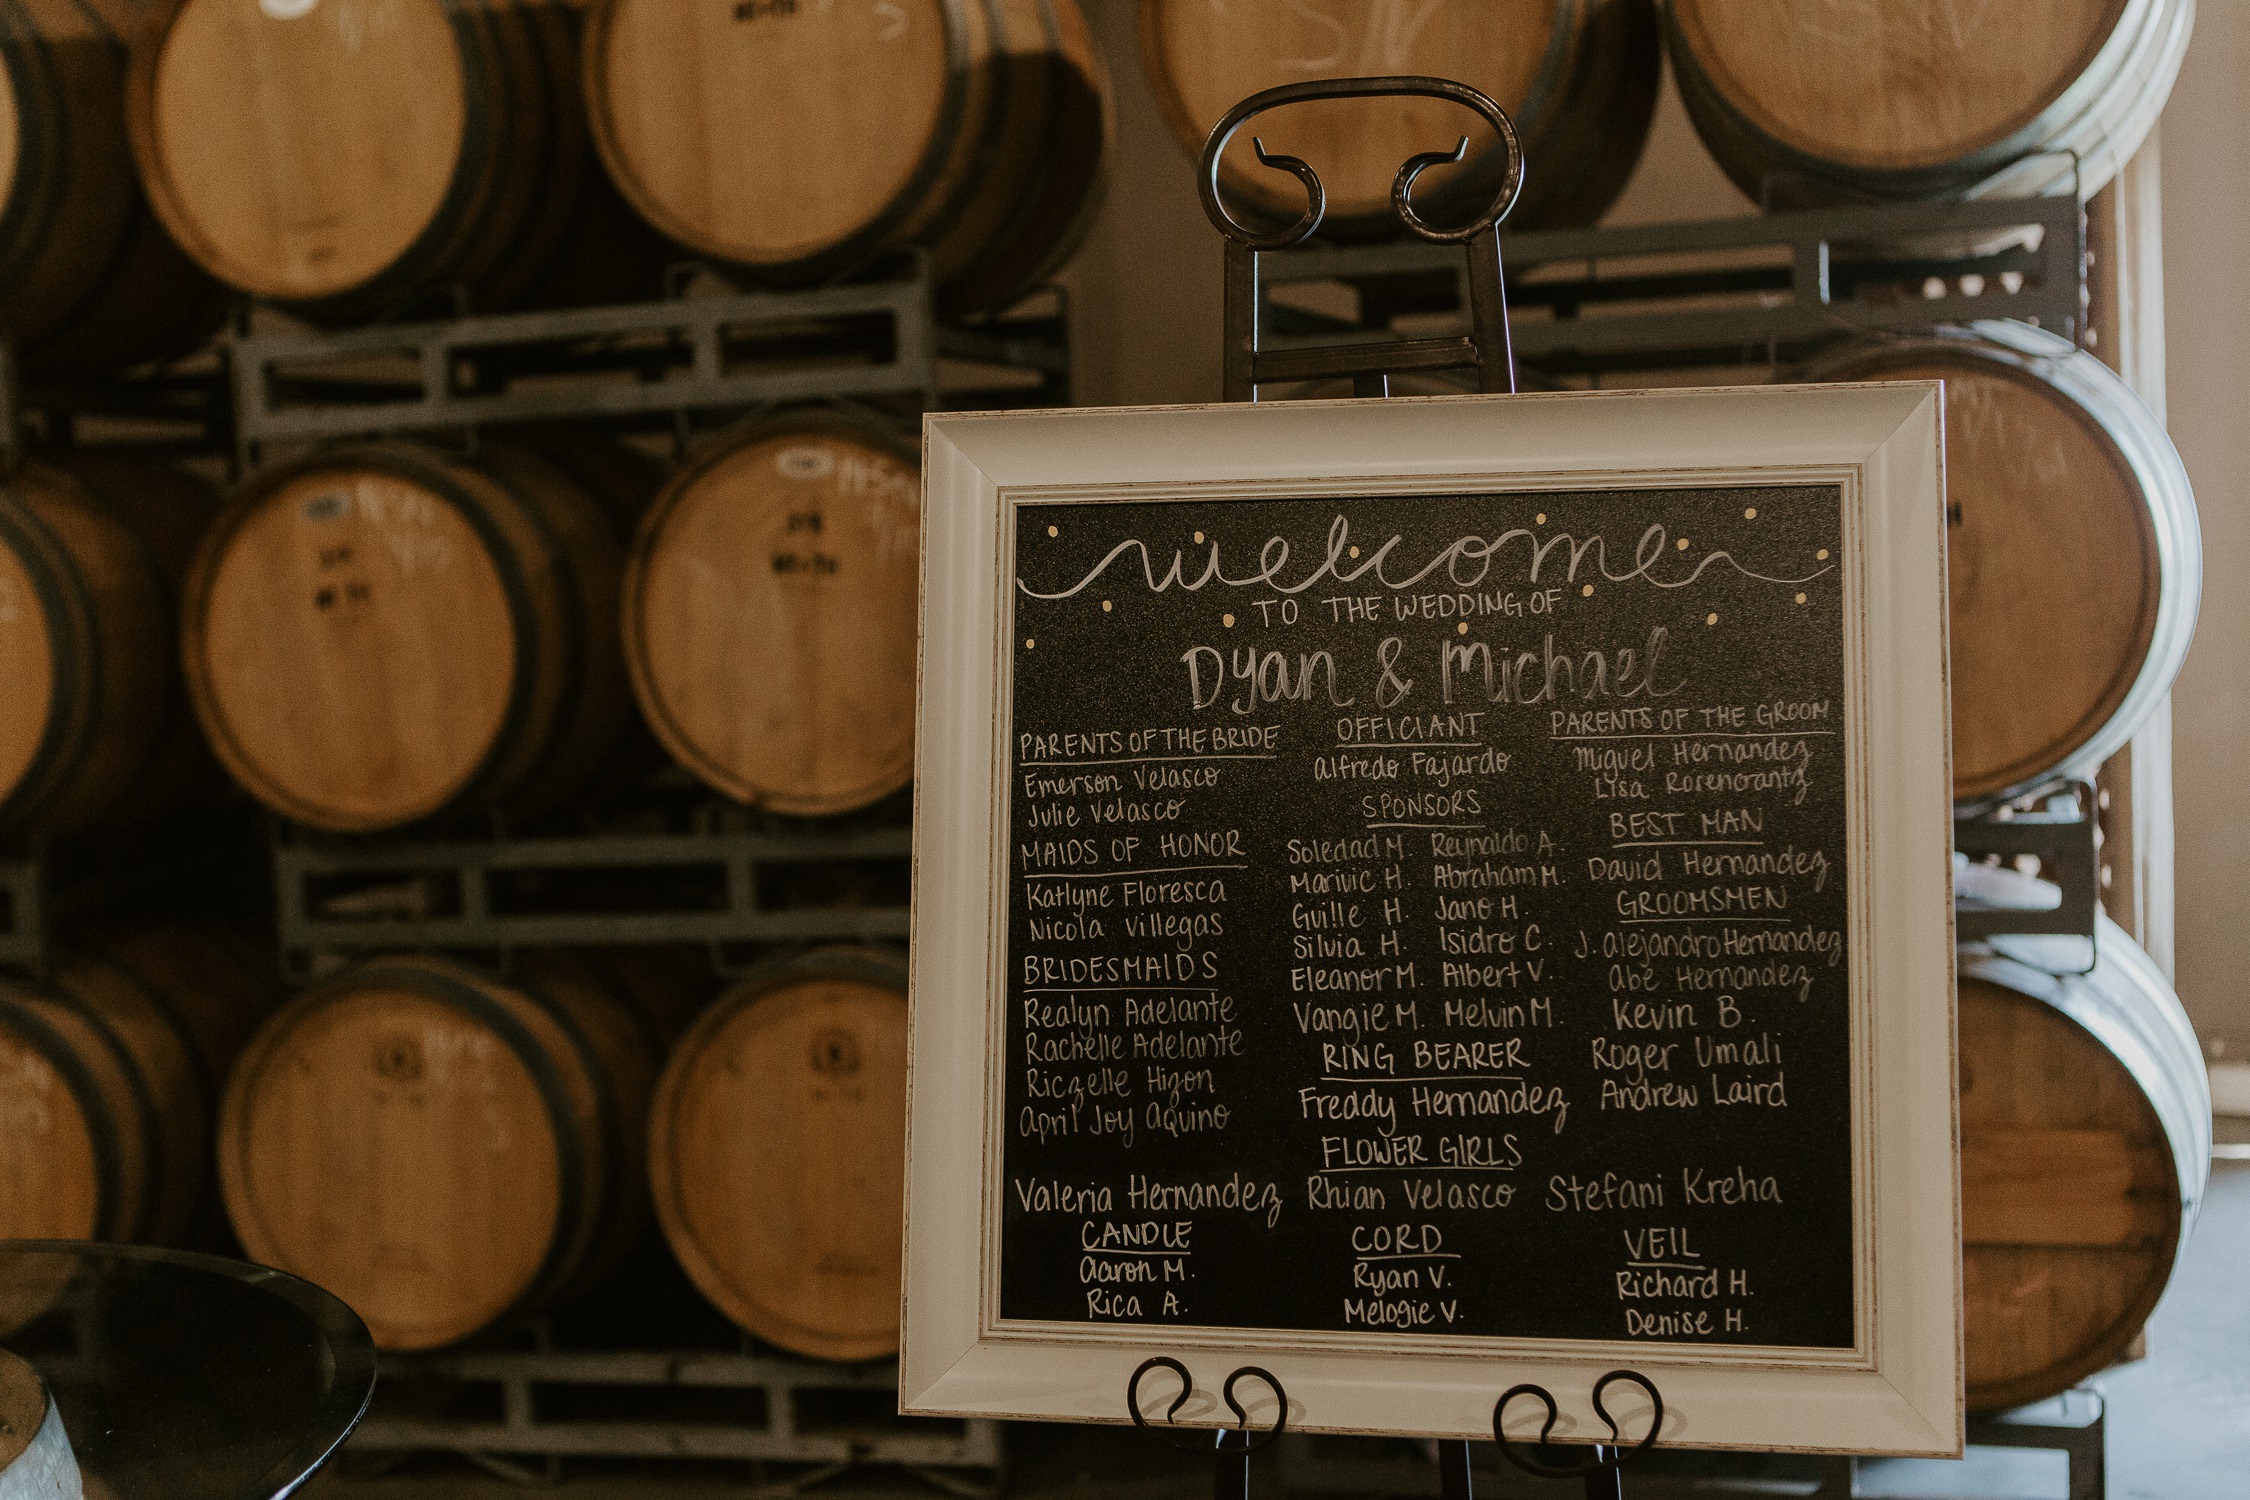 welcome
TO THE WEDDING OF
Dyan & Michael
PARENTS OF THE BRIDE
Emerson Velasco
Julie Velasco
MAIDS OF HONOR
Katlyne Floresca
Nicola Villegas
BRIDESMAIDS
Realyn Adelante
Rachelle Adelante
Riczelle Hizon
April Joy Aquino
OFFICIANT
Alfredo Fajardo
SPONSORS
Soledad M. Reynaldo A.
Marivic H. Abraham M.
Guille H. Jano H.
Silvia H. Isidro C.
Eleanor M. Albert V.
Vangie M. Melvin M.
RING BEARER
Freddy Hernandez
PARENTS OF THE GROOM
Miguel Hernandez
Lisa Rosencrantz
BEST MAN
David Hernandez
GROOMSMEN
J. Alejandro Hernandez
Abe Hernandez
Kevin B.
Roger Umali
Andrew Laird
FLOWER GIRLS
Valeria Hernandez Rhian Velasco Stefani Kreha
CANDLE
Aaron M.
Rica A.
CORD
Ryan V.
Melogie V.
VEIL
Richard H.
Denise H.